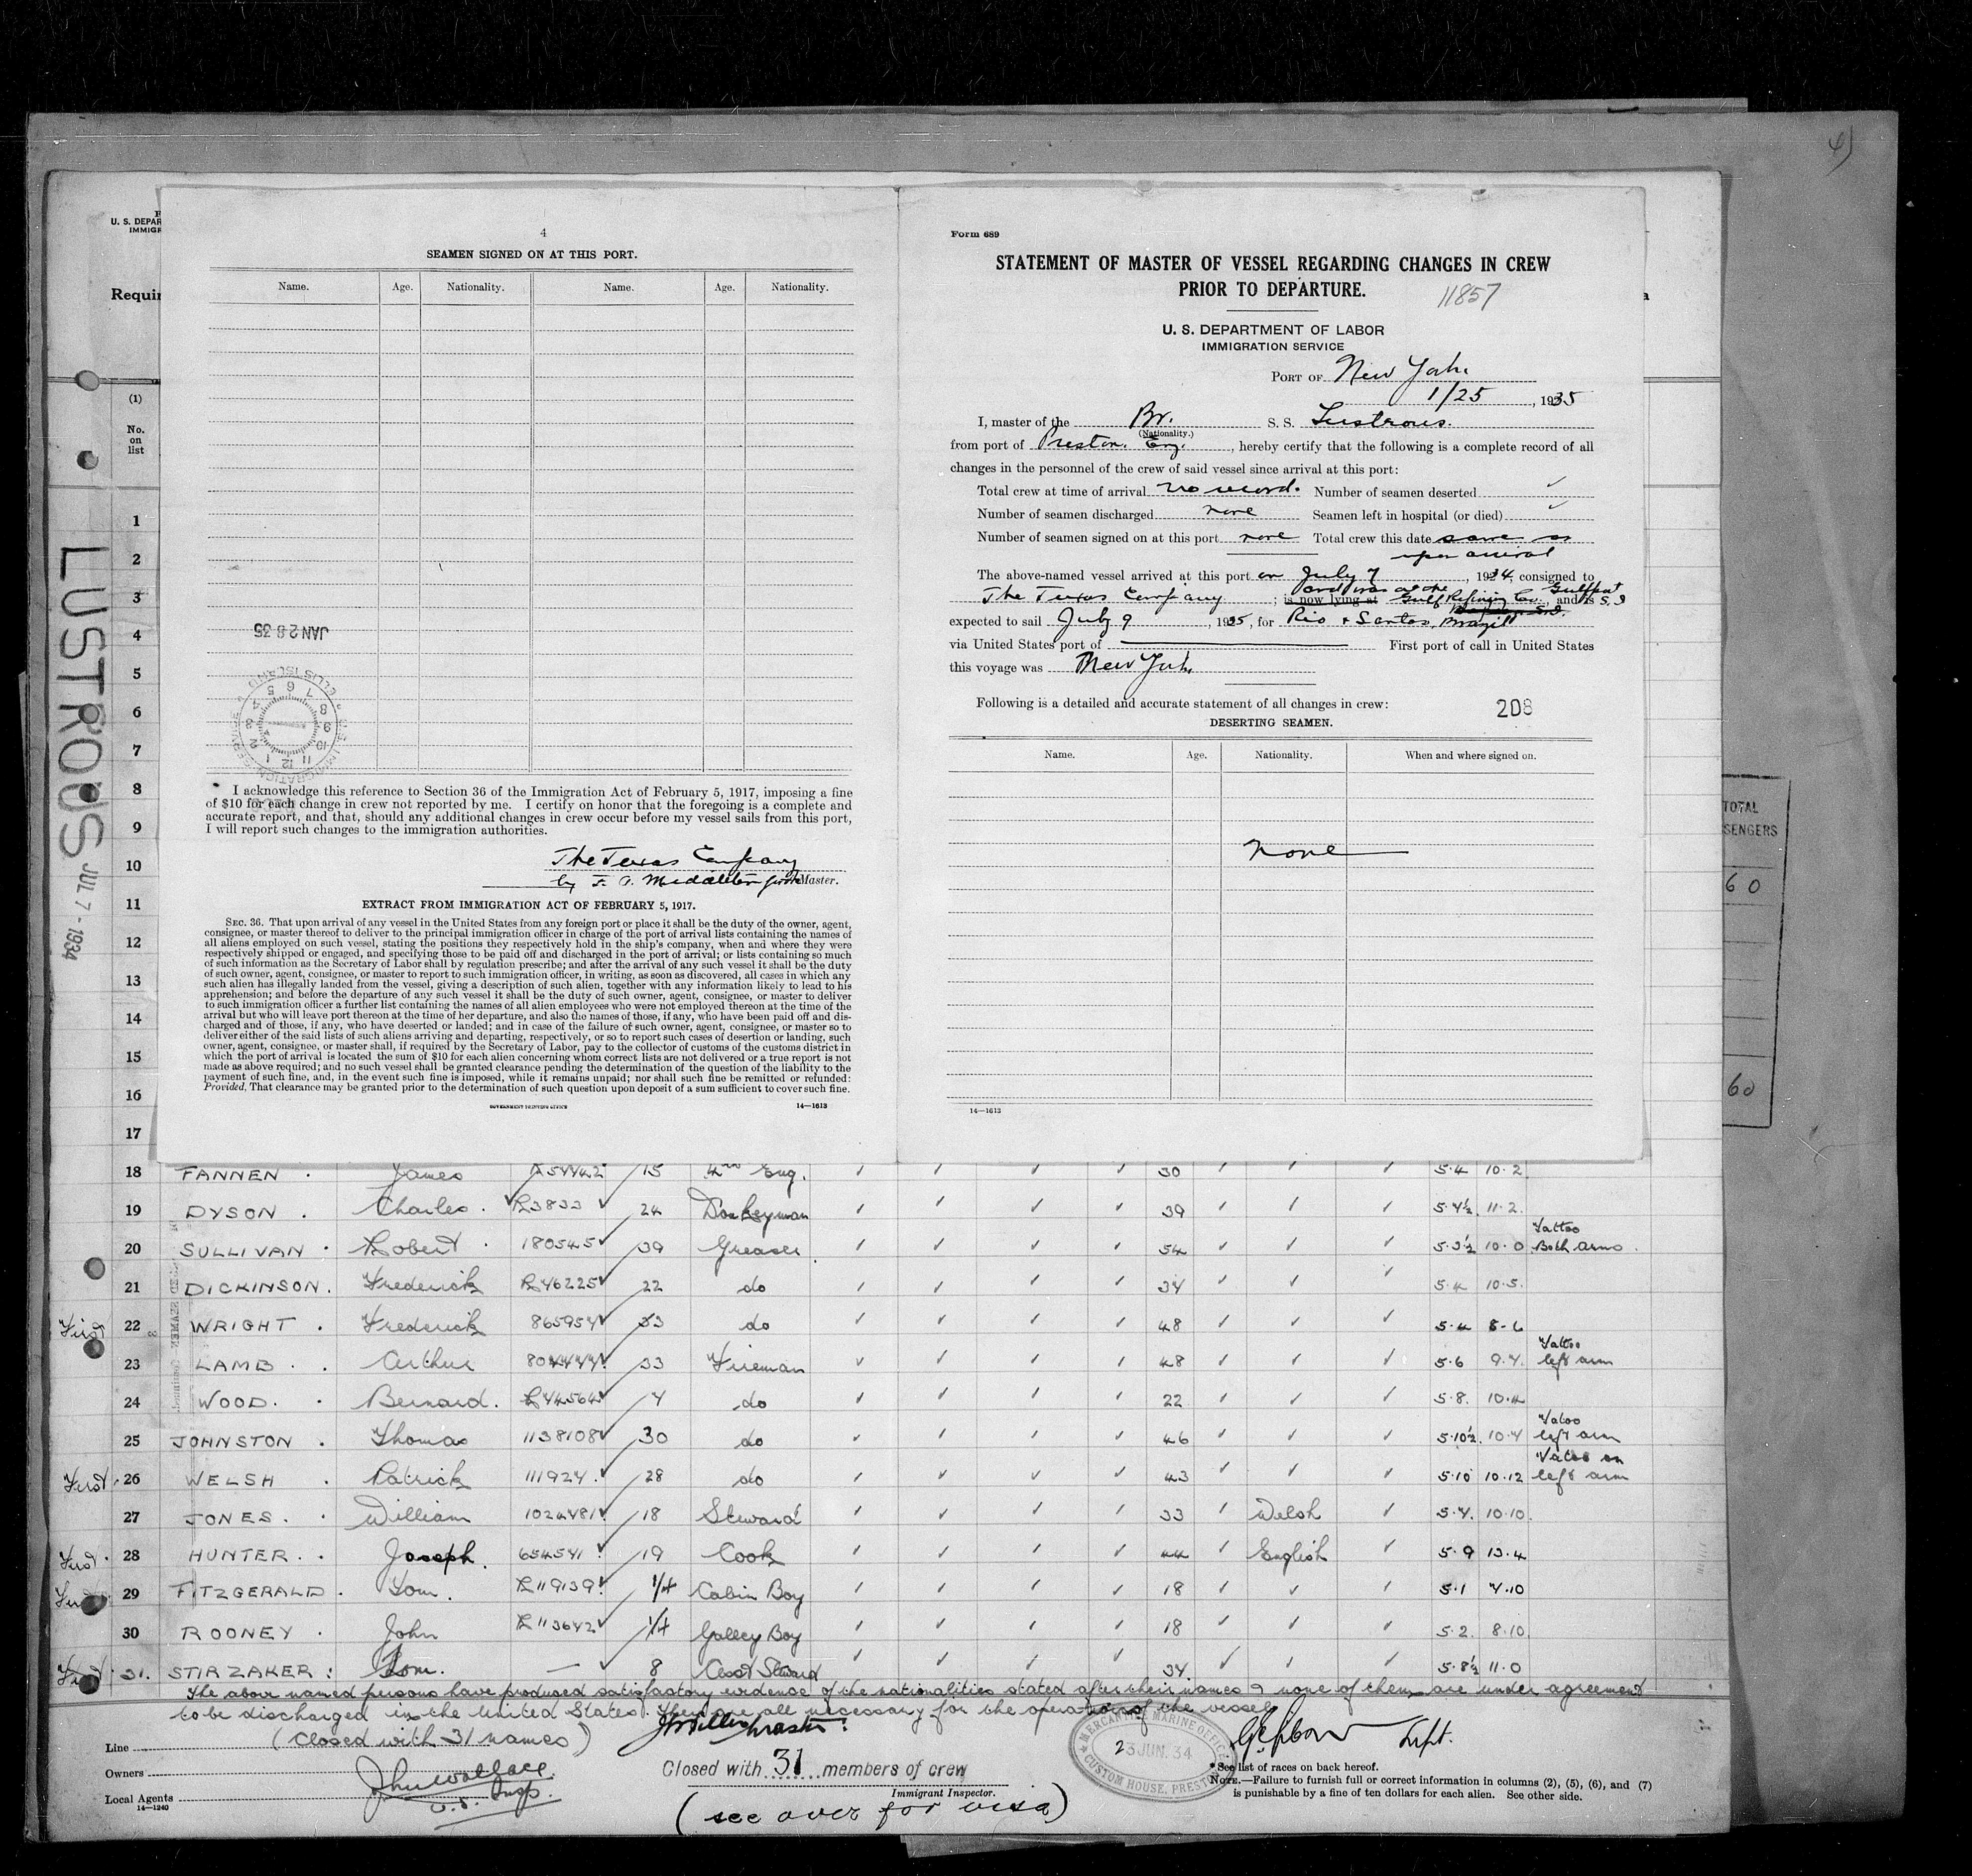 6)
F
U. S. DEPAR
IMMIGR
Requir
(1)
No.
on
list
LUSTROUS JUL 7 - 1934
4
SEAMEN SIGNED ON AT THIS PORT.
Name. Age. Nationality. Name. Age. Nationality.
JAN 26 35
ELLIS ISLAND
I acknowledge this reference to Section 36 of the Immigration Act of February 5, 1917, imposing a fine
of $10 for each change in crew not reported by me. I certify on honor that the foregoing is a complete and
accurate report, and that, should any additional changes in crew occur before my vessel sails from this port,
I will report such changes to the immigration authorities.
The Texas Company
by Master.
EXTRACT FROM IMMIGRATION ACT OF FEBRUARY 5, 1917.
SEC. 36. That upon arrival of any vessel in the United States from any foreign port or place it shall be the duty of the owner, agent,
consignee, or master thereof to deliver to the principal immigration officer in charge of the port of arrival lists containing the names of
all aliens employed on such vessel, stating the positions they respectively hold in the ship's company, when and where they were
respectively shipped or engaged, and specifying those to be paid off and discharged in the port of arrival; or lists containing so much
of such information as the Secretary of Labor shall by regulation prescribe; and after the arrival of any such vessel it shall be the duty
of such owner, agent, consignee, or master to report to such immigration officer, in writing, as soon as discovered, all cases in which any
such alien has illegally landed from the vessel, giving a description of such alien, together with any information likely to lead to his
apprehension; and before the departure of any such vessel it shall be the duty of such owner, agent, consignee, or master to deliver
to such immigration officer a further list containing the names of all alien employees who were not employed thereon at the time of the
arrival but who will leave port thereon at the time of her departure, and also the names of those, if any, who have been paid off and dis-
charged and of those, if any, who have deserted or landed; and in case of the failure of such owner, agent, consignee, or master so to
deliver either of the said lists of such aliens arriving and departing, respectively, or so to report such cases of desertion or landing, such
owner, agent, consignee, or master shall, if required by the Secretary of Labor, pay to the collector of customs of the customs district in
which the port of arrival is located the sum of $10 for each alien concerning whom correct lists are not delivered or a true report is not
made as above required; and no such vessel shall be granted clearance pending the determination of the question of the liability to the
payment of such fine, and, in the event such fine is imposed, while it remains unpaid; nor shall such fine be remitted or refunded:
Provided, That clearance may be granted prior to the determination of such question upon deposit of a sum sufficient to cover such fine.
GOVERNMENT PRINTING OFFICE 14—1613
Form 689
STATEMENT OF MASTER OF VESSEL REGARDING CHANGES IN CREW
PRIOR TO DEPARTURE.
11857
U. S. DEPARTMENT OF LABOR
IMMIGRATION SERVICE
PORT OF New York
1/25, 1935
I, master of the Br. S. S. Lustrous.
(Nationality.)
from port of Preston. Eng., hereby certify that the following is a complete record of all
changes in the personnel of the crew of said vessel since arrival at this port:
Total crew at time of arrival no record. Number of seamen deserted ✓
Number of seamen discharged none Seamen left in hospital (or died) ✓
Number of seamen signed on at this port none Total crew this date same as
upon arrival
The above-named vessel arrived at this port on July 7, 1934, consigned to
and was at the Gulfport
The Texas Company; is now lying at Gulf Refining Co., and is S.I
expected to sail July 9, 1935, for Rio & Santos, Brazil
via United States port of First port of call in United States
this voyage was New York
Following is a detailed and accurate statement of all changes in crew: 208
DESERTING SEAMEN.
Name. Age. Nationality. When and where signed on.
none
14—1613
TOTAL
SENGERS
60
60
1
2
3
4
5
6
7
8
9
10
11
12
13
14
15
16
17
18 FANNEN . James R54442 15 4th Eng. ✓ ✓ ✓ ✓ 30 ✓ ✓ ✓ 5.4 10.2
19 DYSON . Charles . R3833 ✓ 24 Donkeyman ✓ ✓ ✓ ✓ 39 ✓ ✓ ✓ 5.4½ 11.2.
20 SULLIVAN . Robert . 180545 ✓ 39 Greaser ✓ ✓ ✓ ✓ 54 ✓ ✓ ✓ 5.3½ 10.0 Tattoo Both arms.
21 DICKINSON. Frederick R46225 ✓ 22 do ✓ ✓ ✓ ✓ 34 ✓ ✓ ✓ 5.4 10.5.
First 22 WRIGHT . Frederick 865954 ✓ 33 do ✓ ✓ ✓ ✓ 48 ✓ ✓ ✓ 5.4 8-6
23 LAMB . . Arthur 804444 ✓ 33 Fireman ✓ ✓ ✓ ✓ 48 ✓ ✓ ✓ 5.6 9.4. Tattoo left arm
24 WOOD. . Bernard. R44564 ✓ 4 do ✓ ✓ ✓ ✓ 22 ✓ ✓ ✓ 5.8. 10.4
25 JOHNSTON . Thomas 1138108 ✓ 30 do ✓ ✓ ✓ ✓ 46 ✓ ✓ ✓ 5.10½ 10.4 Tatoo left arm
First. 26 WELSH . Patrick 111924. ✓ 28 do ✓ ✓ ✓ ✓ 43 ✓ ✓ ✓ 5.10 10.12 Tatoo on left arm
27 JONES. . William 1024481 ✓ 18 Steward ✓ ✓ ✓ ✓ 33 ✓ Welsh ✓ 5.4. 10.10.
First. 28 HUNTER. . Joseph. 654541 ✓ 19 Cook ✓ ✓ ✓ ✓ 44 ✓ English ✓ 5.9 13.4
First 29 FITZGERALD . Tom. R119139 ✓ 1/4 Cabin Boy ✓ ✓ ✓ ✓ 18 ✓ ✓ ✓ 5.1 7.10
30 ROONEY . John R113642 ✓ 1/4 Galley Boy ✓ ✓ ✓ ✓ 18 ✓ ✓ ✓ 5.2. 8.10.
First. 31. STIRZAKER : Tom. — ✓ 8 Asst Steward ✓ ✓ ✓ ✓ 34 ✓ ✓ ✓ 5.8½ 11.0
The above named persons have produced satisfactory evidence of the nationalities stated after their names & none of them are under agreement
to be discharged in the United States. They are all necessary for the operation of the vessel
Master.
(Closed with 31 names)
Line
Owners
Local Agents
14—1240
John Wallace
U.S. Insp.
Closed with 31 members of crew
Immigrant Inspector.
(see over for visa)
MERCANTILE MARINE OFFICE
23 JUN. 34
CUSTOM HOUSE, PRESTON
Supt.
* See list of races on back hereof.
NOTE.—Failure to furnish full or correct information in columns (2), (5), (6), and (7)
is punishable by a fine of ten dollars for each alien. See other side.